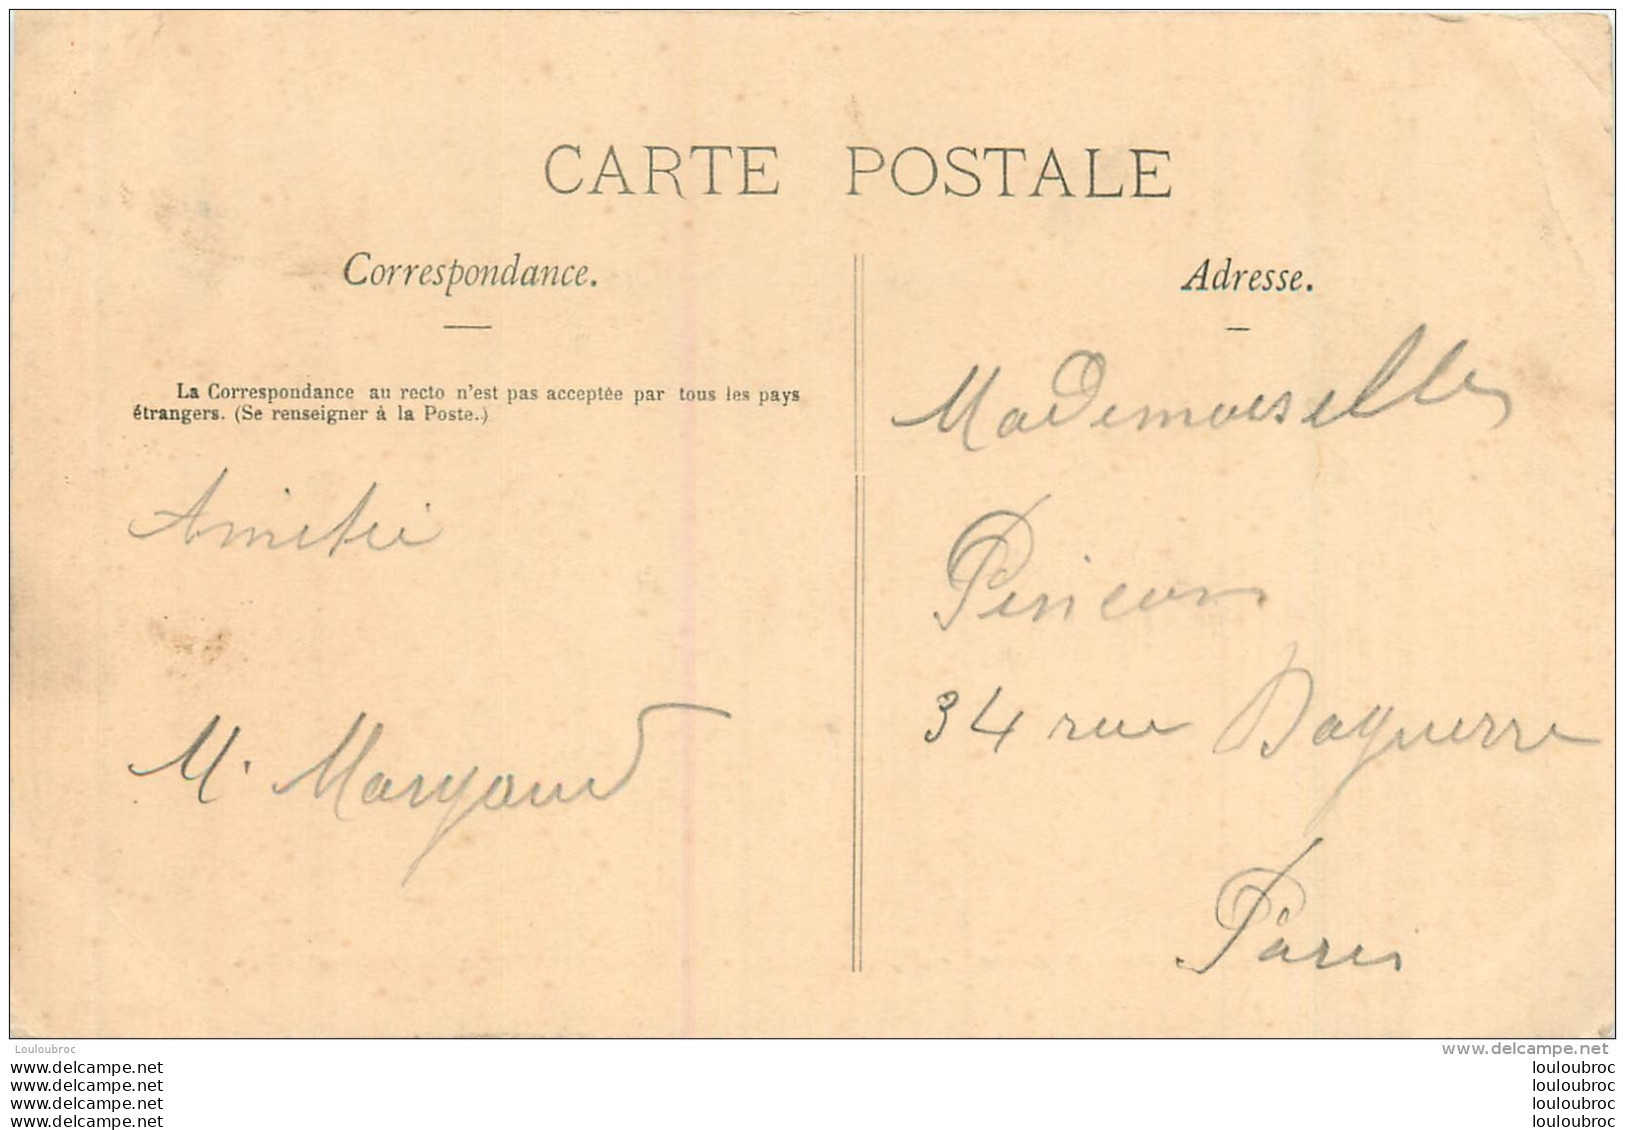 CARTE POSTALE
Correspondance.
La Correspondance au recto n'est pas acceptée par tous les pays
étrangers. (Se renseigner à la Poste.)
Amitié
M. Margaud
Adresse.
Mademoiselle
34 rue Daguerre
Paris
Louloubroc
www.delcampe.net
www.delcampe.net
www.delcampe.net
www.delcampe.net
www.delcampe.net
louloubroc
louloubroc
louloubroc
louloubroc